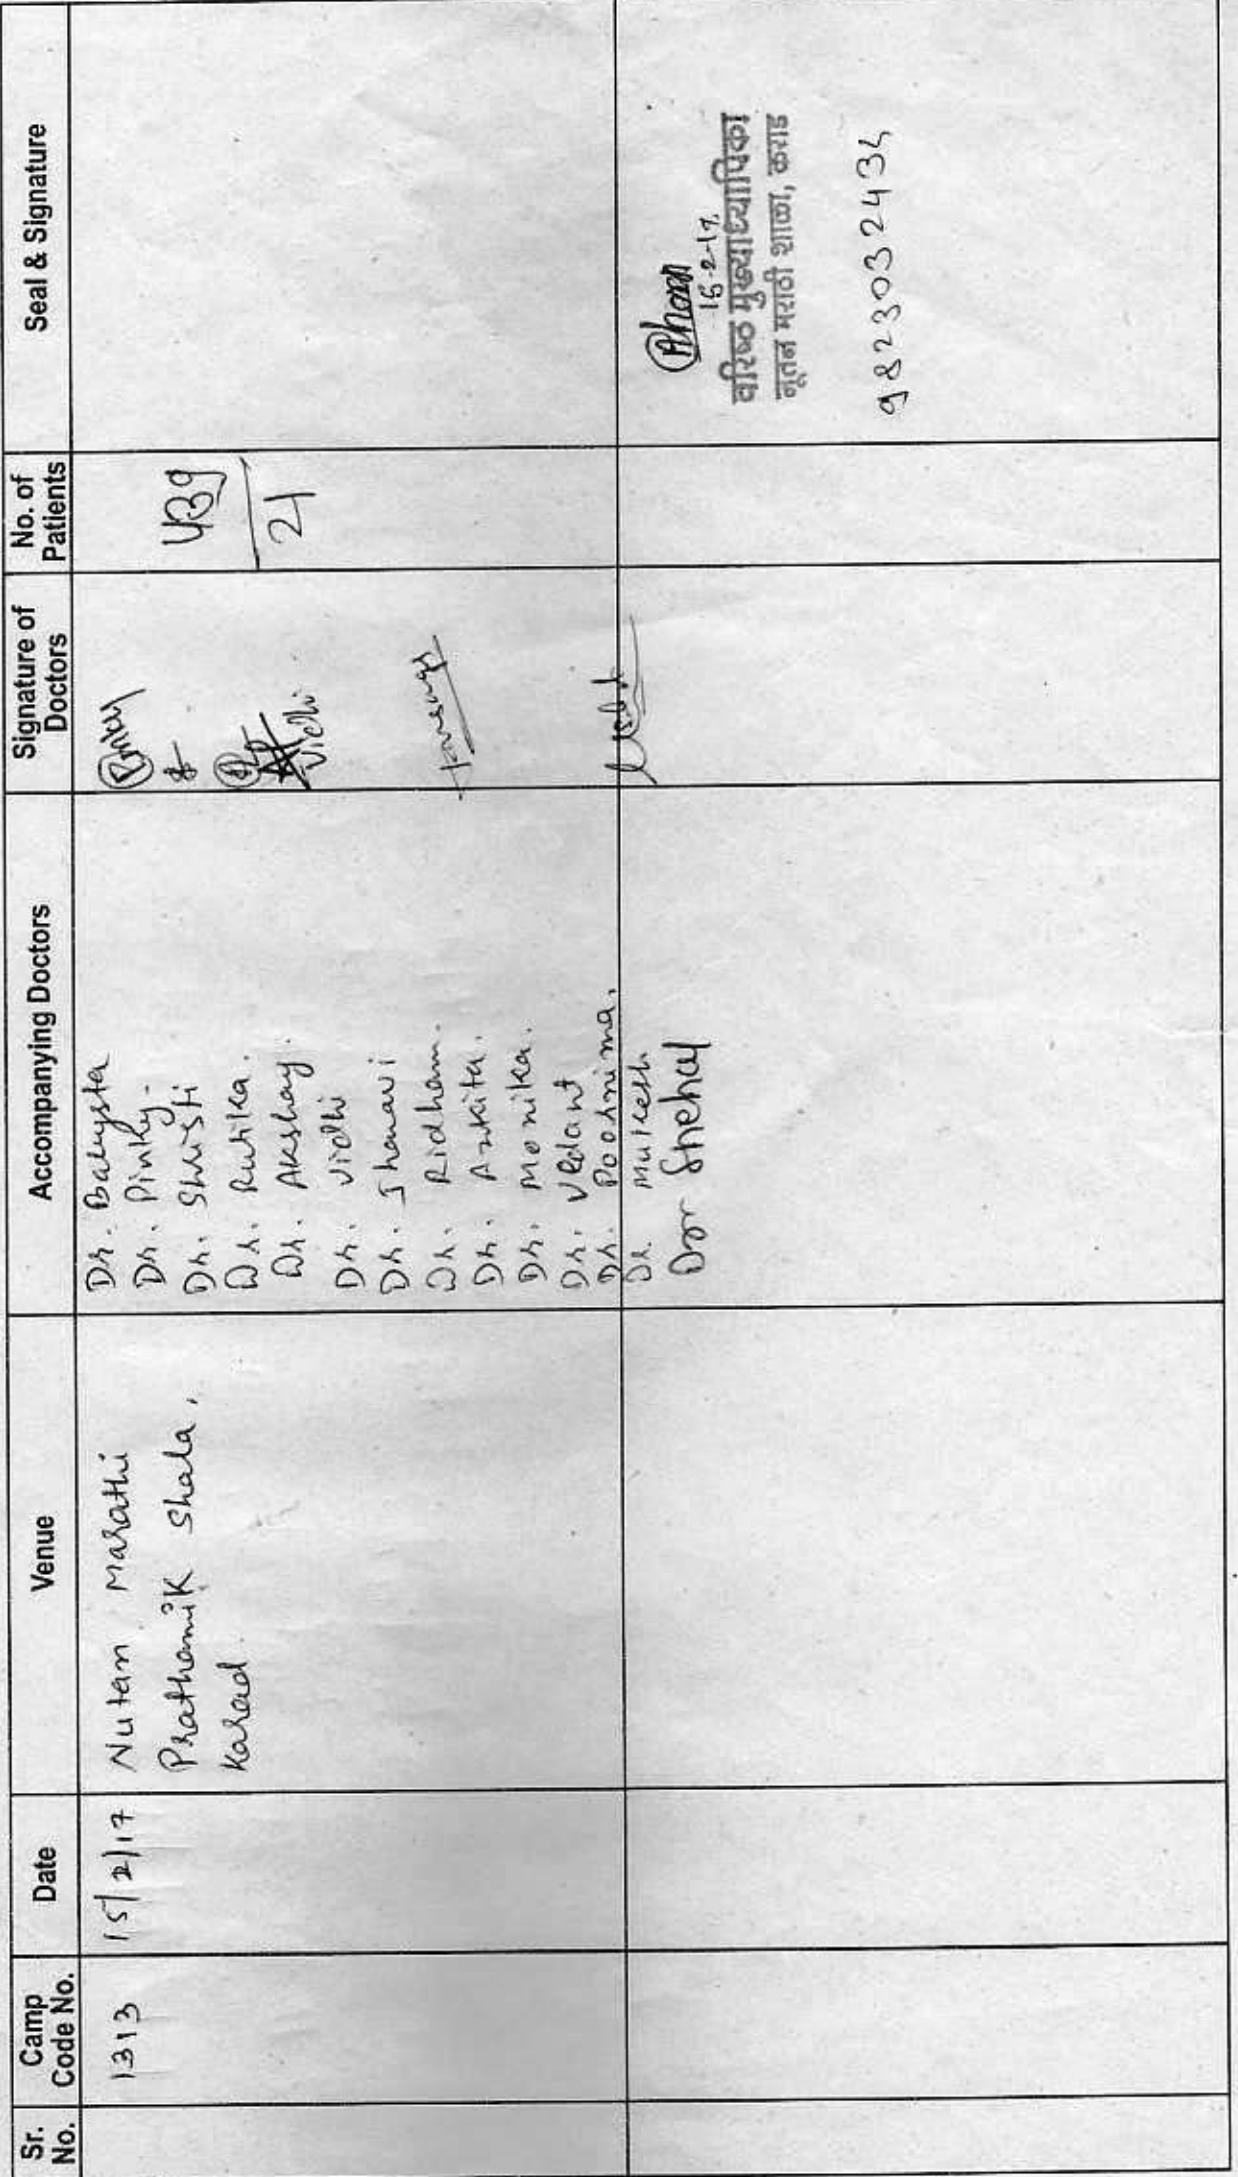 Sr. No.
Camp Code No.
Date
Venue
Accompanying Doctors
Signature of Doctors
No. of Patients
Seal & Signature
1313
15/2/17
Nutan Marathi
Prathamik Shala,
Karad.
Dr.
Dr. Pinky.
Dr. Shristi
Dr. Rutika.
Dr. Akshay.
Dr. Vidhi
Dr. Jhanavi
Dr. Ridham.
Dr. Ankita.
Dr. Monika.
Dr. Vedant
Dr. Poornima.
Dr. Mukesh
Dr Snehal
Vidhi
439
21
15-2-17
वरिष्ठ मुख्याध्यापिका
नूतन मराठी शाळा, कराड
9823032434